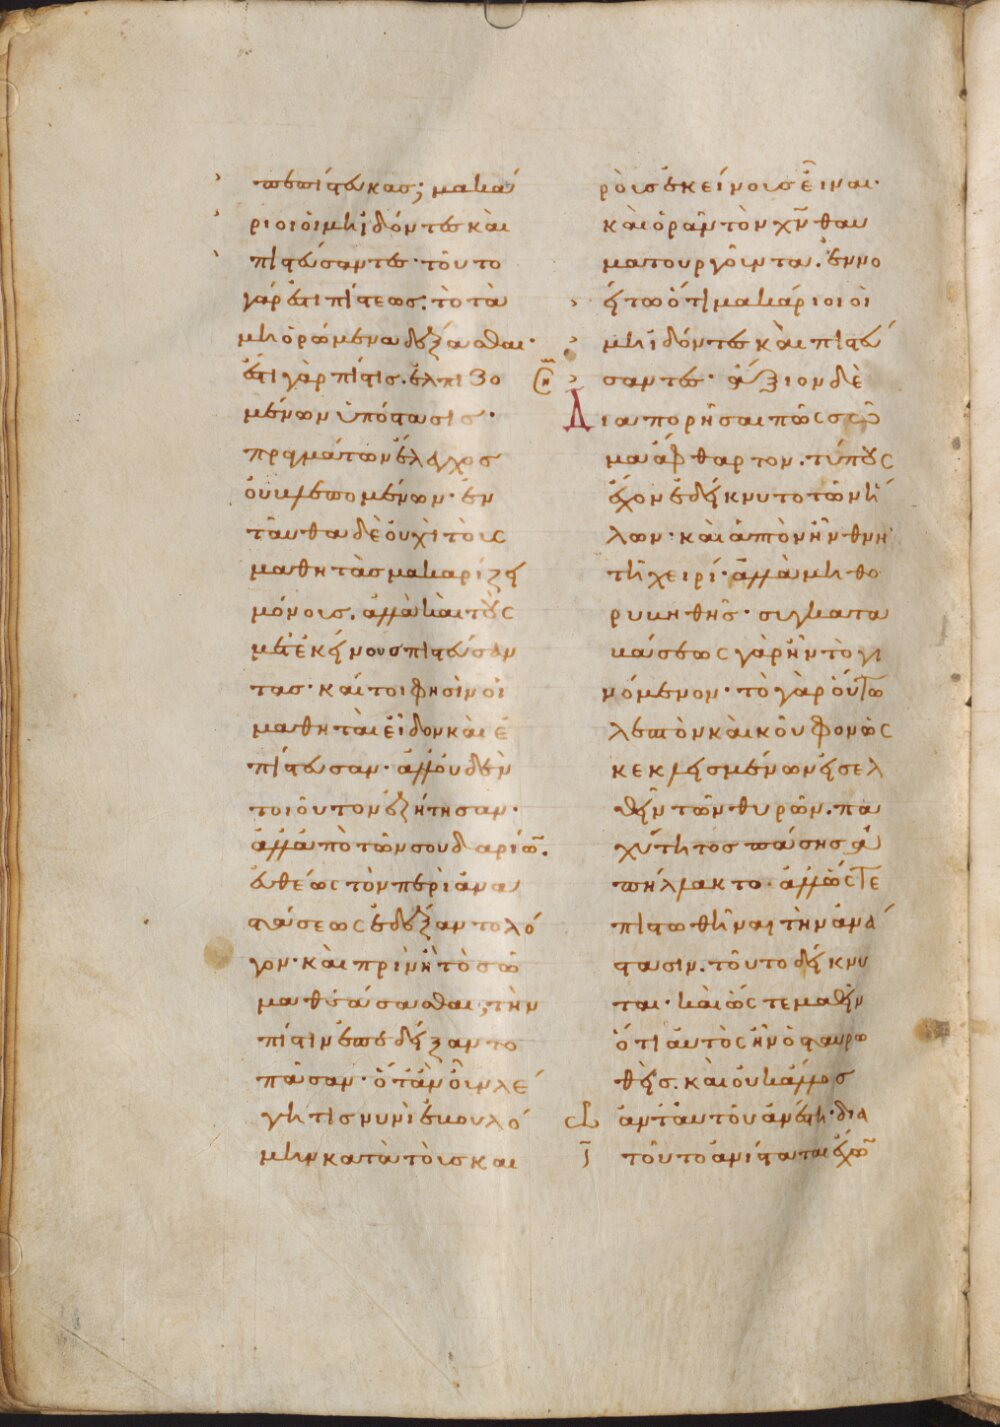 πεπίστευκας; μακά
ριοι οἱ μὴ ἰδόντες καὶ
πιστεύσαντες· τοῦτο
γάρ ἐστι πίστεως· τὸ τὰ
μὴ ὁρώμενα δέξασθαι·
ἔστι γὰρ πίστις. ἐλπιζο
μένων ὑπόστασις·
πραγμάτων ἔλεγχος
οὐ βλεπομένων· ἐν
ταῦθα δὲ οὐχὶ τοὺς
μαθητὰς μακαρίζει
μόνους. ἀλλὰ καὶ τοὺς
μετ' ἐκείνους πιστεύσαν
τας· καίτοι φησὶν οἱ
μαθηταὶ εἶδον καὶ ἐ
πίστευσαν· ἀλλ' οὐδὲν
τοιοῦτον ἐζήτησαν·
ἀλλ' ἀπὸ τῶν σουδαρίω̅.
εὐθέως τὸν περὶ ἀνα
στάσεως ἐδέξαντο λό
γον· καὶ πρὶν ἢ τὸ σῶ
μα θεάσασθαι, τὴν
πίστιν ἐπεδείξαντο
πᾶσαν· ὅταν οὖν λέ
γῃ τις νυνὶ ἐβουλό
μην κατὰ τοὺς και
ροὺς ἐκείνους εἶναι·
καὶ ὁρᾶν τὸν χ̅ν̅ θαυ
ματουργοῦντα. ἐννο
είτω ὅτι μακάριοι οἱ
μὴ ἰδόντες καὶ πιστεύ
σαντες· ἄξιον δὲ
Διαπορῆσαι πῶς σῶ
μα ἄφθαρτον. τύπους
ἔχον ἐδείκνυτο τῶν ἥ
λων· καὶ ἁπὸν ἦν θνη
τῇ χειρί· ἀλλὰ μὴ θο
ρυβηθῇς· συγκατα
βάσεως γὰρ ἦν τὸ γι
νόμενον· τὸ γὰρ οὕτω
λεπτὸν καὶ κοῦφον ὡς
κεκλεισμένων εἰσελ
θεῖν τῶν θυρῶν. πα
χύτητος πάσης ἀ
πήλλακτο· ἀλλ' ὥστε
πιστωθῆναι τὴν ἀνά
στασιν. τοῦτο δείκνυ
ται· καὶ ὥστε μαθεῖν
ὅτι αὐτὸς ἦν ὁ σταυρω
θείς. καὶ οὐκ ἄλλος
ἀντ' αὐτοῦ ἀνέστη· διὰ
τοῦτο ἀνίσταται ἔχω̅